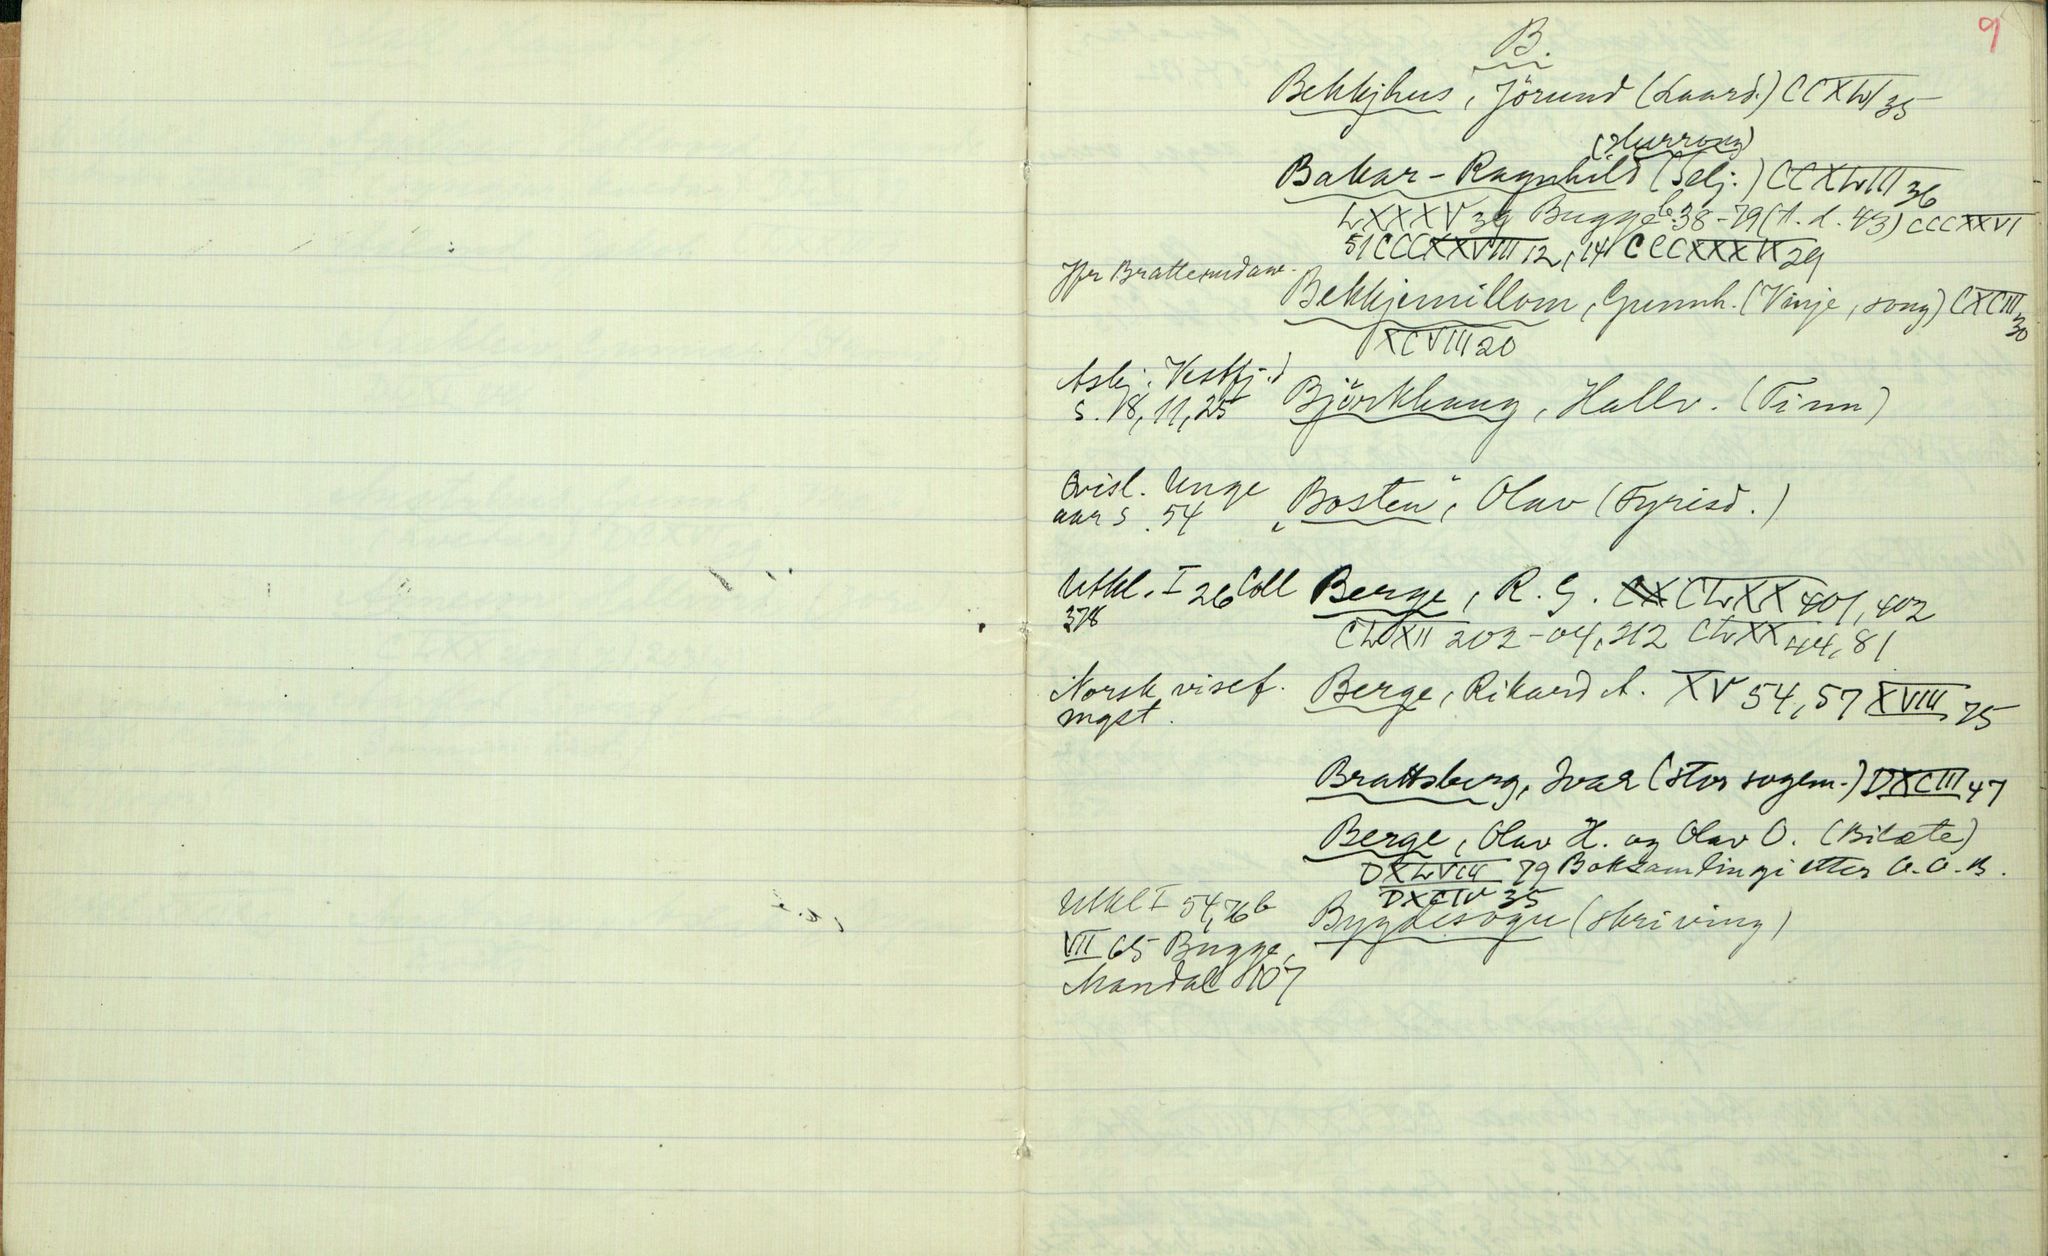 9
B.
Bekkjhus, Jörund (Laard.) CCXLVI 35
Bakar-Ragnhild (Selj.) CCXLVIII 36
LXXXV 39 Bugge b. 38-79 (A. d. 43) CCCXXVI
51 CCCXXVIII 12, 14 CCCXXXIX 29
Jfr Brattesudaw. Bekkjemillom, Gunnh. (Vinje, song) CXCIII 30
XCVIII 20
Asbj. Vestfj.d Björkhaug, Hallv. (Tinn)
s. 18, 11, 25
Kvisl. Unge „Bosten“, Olav (Fyrisd.)
aar s. 54
Utkl. I 26 Coll Berge, R. G. CLXX 401, 402
378
CLXII 202-04, 212 CLXX 44, 81
Norsk visef. Berge, Rikard A. XV 54, 57 XVIII 75
mgst.
Brattsberg, Ivar (stor sogem.) DXCIII 47
Berge, Olav H. og Olav O. (Bilæte)
DXLVIII 79 Boksamlingi etter O. O. B.
DXCIV 35
Utkl I 54, 76 b Bygdesogu (skriving)
VII 65 Bugge,
Mandal 107